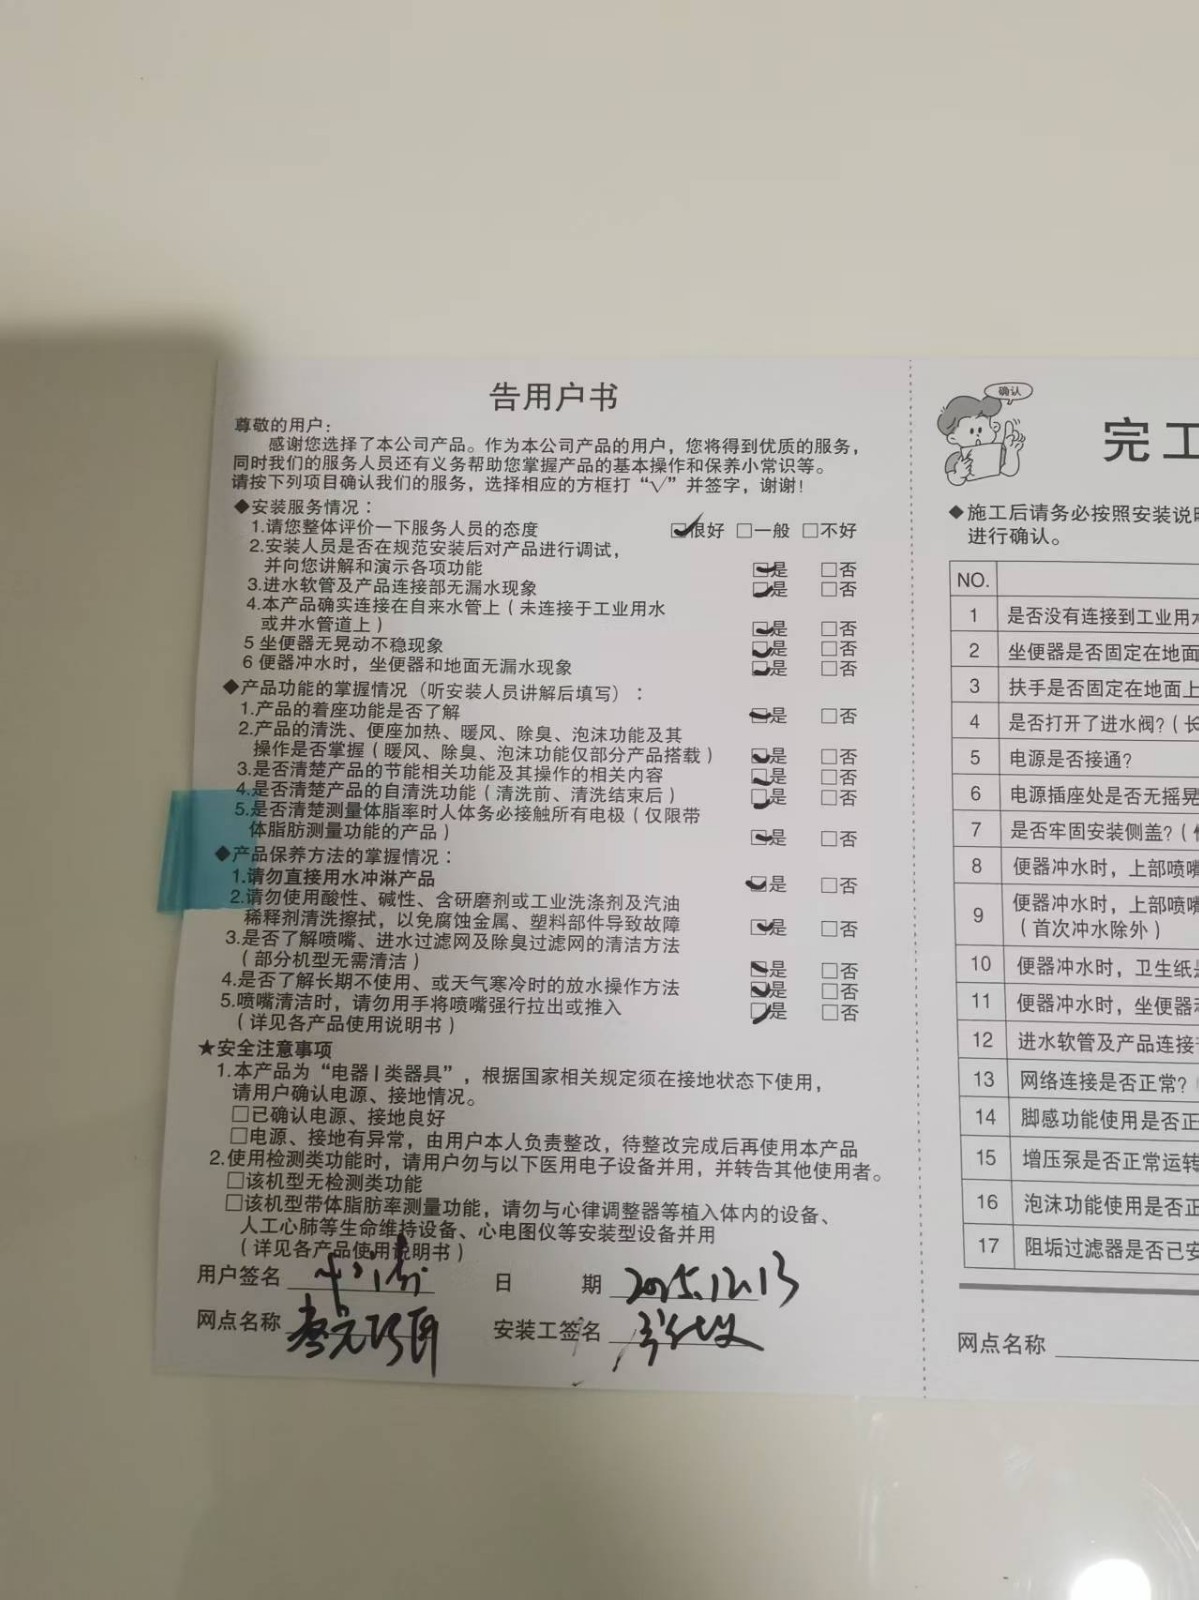 告用户书
尊敬的用户：
感谢您选择了本公司产品。作为本公司产品的用户，您将得到优质的服务，
同时我们的服务人员还有义务帮助您掌握产品的基本操作和保养小常识等。
请按下列项目确认我们的服务，选择相应的方框打“√”并签字，谢谢！
◆安装服务情况：
1.请您整体评价一下服务人员的态度 ☑很好 □一般 □不好
2.安装人员是否在规范安装后对产品进行调试，
并向您讲解和演示各项功能 ☑是 □否
3.进水软管及产品连接部无漏水现象 ☑是 □否
4.本产品确实连接在自来水管上（未连接于工业用水
或井水管道上） ☑是 □否
5 坐便器无晃动不稳现象 ☑是 □否
6 便器冲水时，坐便器和地面无漏水现象 ☑是 □否
◆产品功能的掌握情况（听安装人员讲解后填写）：
1.产品的着座功能是否了解 ☑是 □否
2.产品的清洗、便座加热、暖风、除臭、泡沫功能及其
操作是否掌握（暖风、除臭、泡沫功能仅部分产品搭载） ☑是 □否
3.是否清楚产品的节能相关功能及其操作的相关内容 ☑是 □否
4.是否清楚产品的自清洗功能（清洗前、清洗结束后） ☑是 □否
5.是否清楚测量体脂率时人体务必接触所有电极（仅限带
体脂肪测量功能的产品） ☑是 □否
◆产品保养方法的掌握情况：
1.请勿直接用水冲淋产品 ☑是 □否
2.请勿使用酸性、碱性、含研磨剂或工业洗涤剂及汽油
稀释剂清洗擦拭，以免腐蚀金属、塑料部件导致故障 ☑是 □否
3.是否了解喷嘴、进水过滤网及除臭过滤网的清洁方法
（部分机型无需清洁） ☑是 □否
4.是否了解长期不使用、或天气寒冷时的放水操作方法 ☑是 □否
5.喷嘴清洁时，请勿用手将喷嘴强行拉出或推入 ☑是 □否
（详见各产品使用说明书）
★安全注意事项
1.本产品为“电器Ⅰ类器具”，根据国家相关规定须在接地状态下使用，
请用户确认电源、接地情况。
□已确认电源、接地良好
□电源、接地有异常，由用户本人负责整改，待整改完成后再使用本产品
2.使用检测类功能时，请用户勿与以下医用电子设备并用，并转告其他使用者。
□该机型无检测类功能
□该机型带体脂肪率测量功能，请勿与心律调整器等植入体内的设备、
人工心肺等生命维持设备、心电图仪等安装型设备并用
（详见各产品使用说明书）
用户签名 日 期 2025.12.13
网点名称 安装工签名
确认
完工
◆施工后请务必按照安装说明
进行确认。
NO.
1 是否没有连接到工业用水
2 坐便器是否固定在地面
3 扶手是否固定在地面上
4 是否打开了进水阀？（长
5 电源是否接通？
6 电源插座处是否无摇晃
7 是否牢固安装侧盖？（
8 便器冲水时，上部喷嘴
9 便器冲水时，上部喷嘴
（首次冲水除外）
10 便器冲水时，卫生纸是
11 便器冲水时，坐便器和
12 进水软管及产品连接部
13 网络连接是否正常？
14 脚感功能使用是否正
15 增压泵是否正常运转
16 泡沫功能使用是否正
17 阻垢过滤器是否已安
网点名称